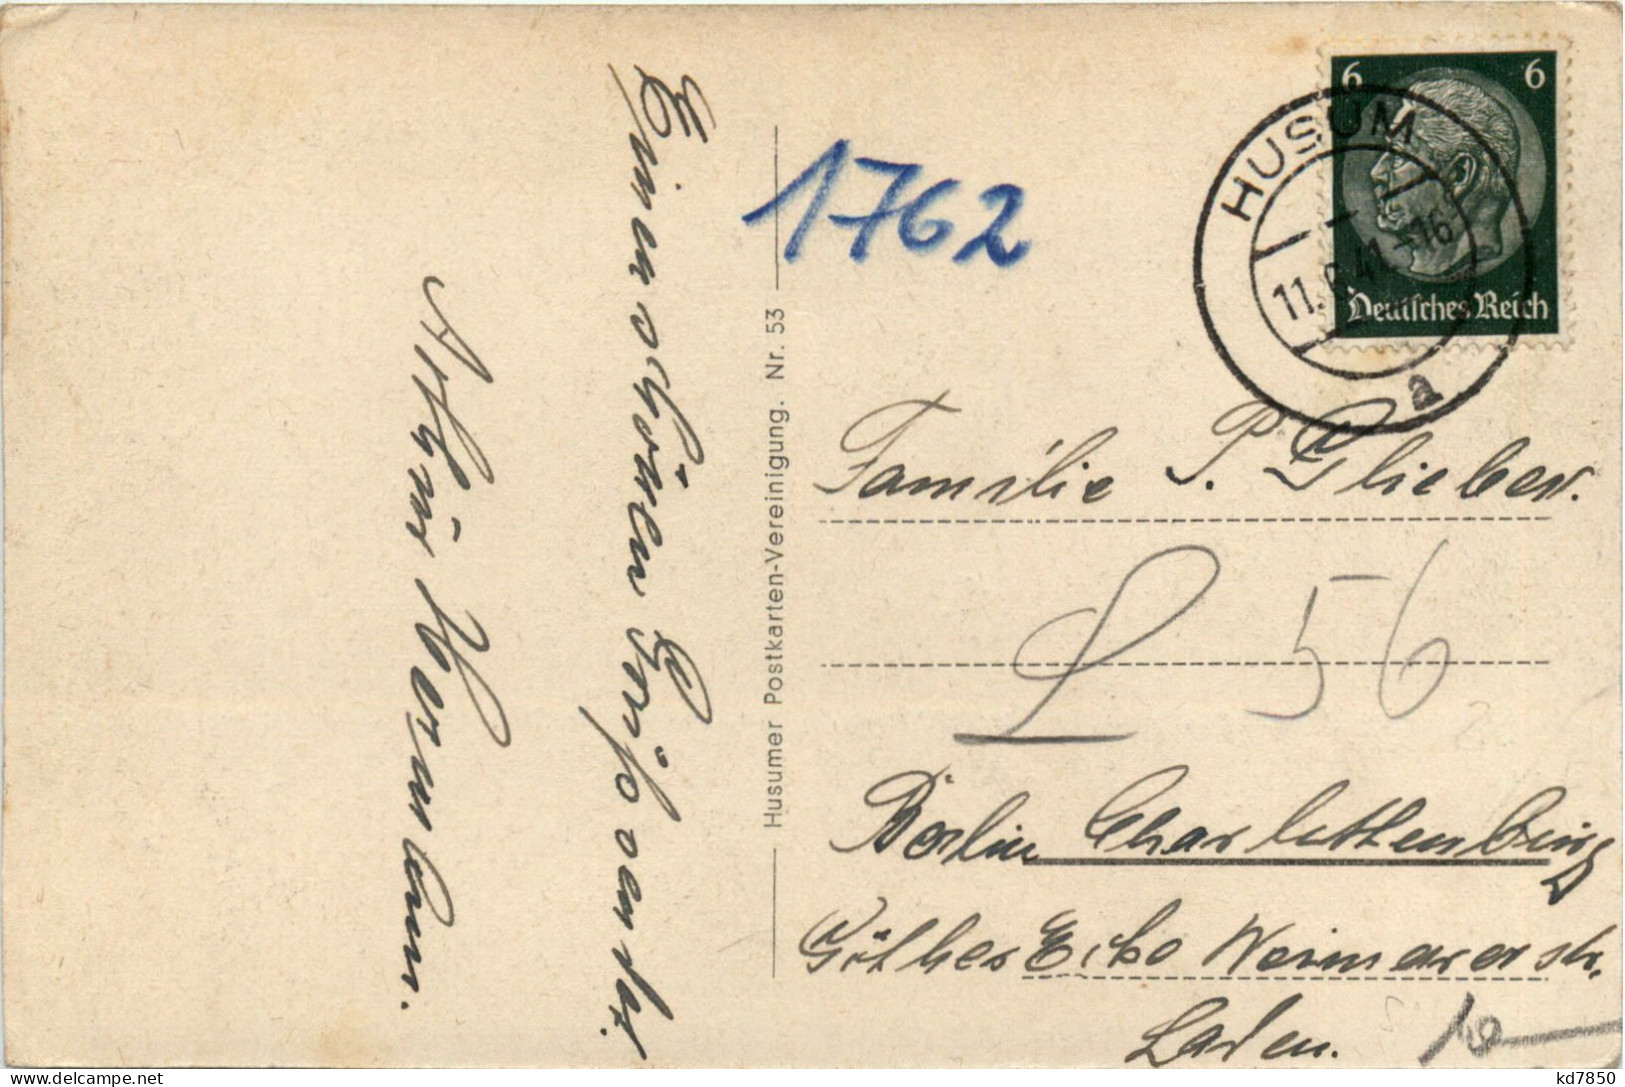 Einen schönen Gruß
1762
Husumer Postkarten-Vereinigung. Nr. 53
6 6
Deutsches Reich
HUSUM
11. 41.-16
a
Familie P. Glieber.
56
Berlin Charlottenburg
Göthes Ecke Weimarerstr.
Laden.
10
kd7850